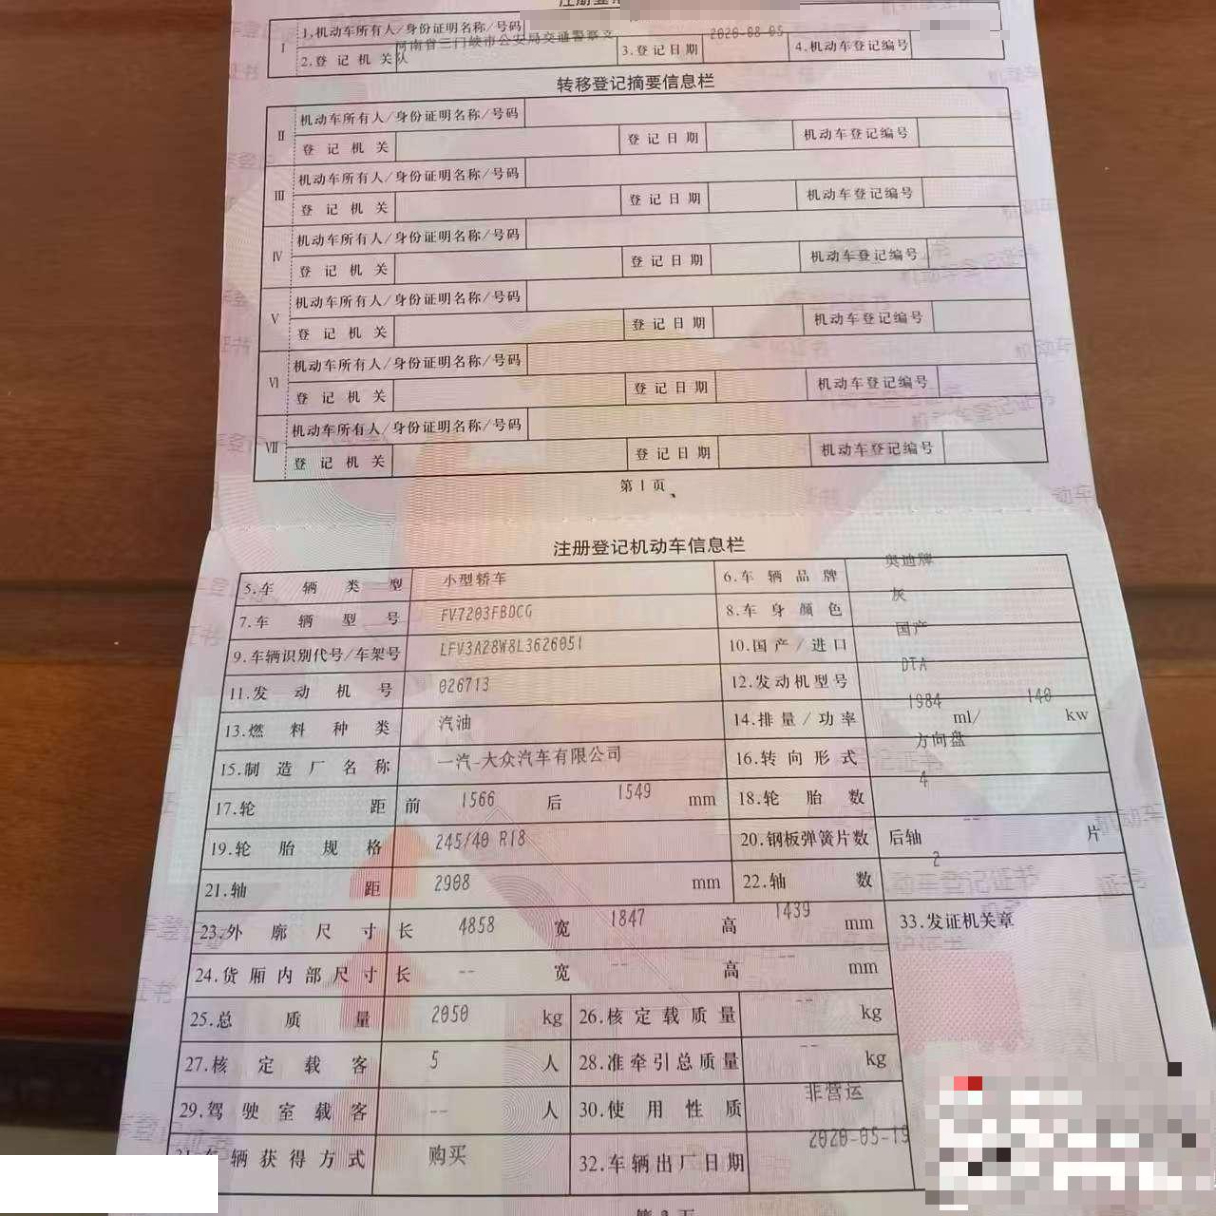 1.机动车所有人/身份证明名称/号码
2.登记机关 河南省三门峡市公安局交通警察支队 3.登记日期 2020-08-05 4.机动车登记编号
转移登记摘要信息栏
II 机动车所有人/身份证明名称/号码
登记机关 登记日期 机动车登记编号
III 机动车所有人/身份证明名称/号码
登记机关 登记日期 机动车登记编号
IV 机动车所有人/身份证明名称/号码
登记机关 登记日期 机动车登记编号
V 机动车所有人/身份证明名称/号码
登记机关 登记日期 机动车登记编号
VI 机动车所有人/身份证明名称/号码
登记机关 登记日期 机动车登记编号
VII 机动车所有人/身份证明名称/号码
登记机关 登记日期 机动车登记编号
第1页
注册登记机动车信息栏
5.车辆类型 小型轿车 6.车辆品牌 奥迪牌
7.车辆型号 FV7203FBDCG 8.车身颜色 灰
9.车辆识别代号/车架号 LFV3A28W8L3626051 10.国产/进口 国产
11.发动机号 026713 12.发动机型号 DTA
13.燃料种类 汽油 14.排量/功率 1984 ml/ 140 kw
15.制造厂名称 一汽-大众汽车有限公司 16.转向形式 方向盘
17.轮距 前 1566 后 1549 mm 18.轮胎数 4
19.轮胎规格 245/40 R18 20.钢板弹簧片数 后轴 -- 片
21.轴距 2908 mm 22.轴数 2
23.外廓尺寸 长 4858 宽 1847 高 1439 mm 33.发证机关章
24.货厢内部尺寸 长 -- 宽 -- 高 mm
25.总质量 2050 kg 26.核定载质量 -- kg
27.核定载客 5 人 28.准牵引总质量 -- kg
29.驾驶室载客 -- 人 30.使用性质 非营运
车辆获得方式 购买 32.车辆出厂日期 2020-05-19